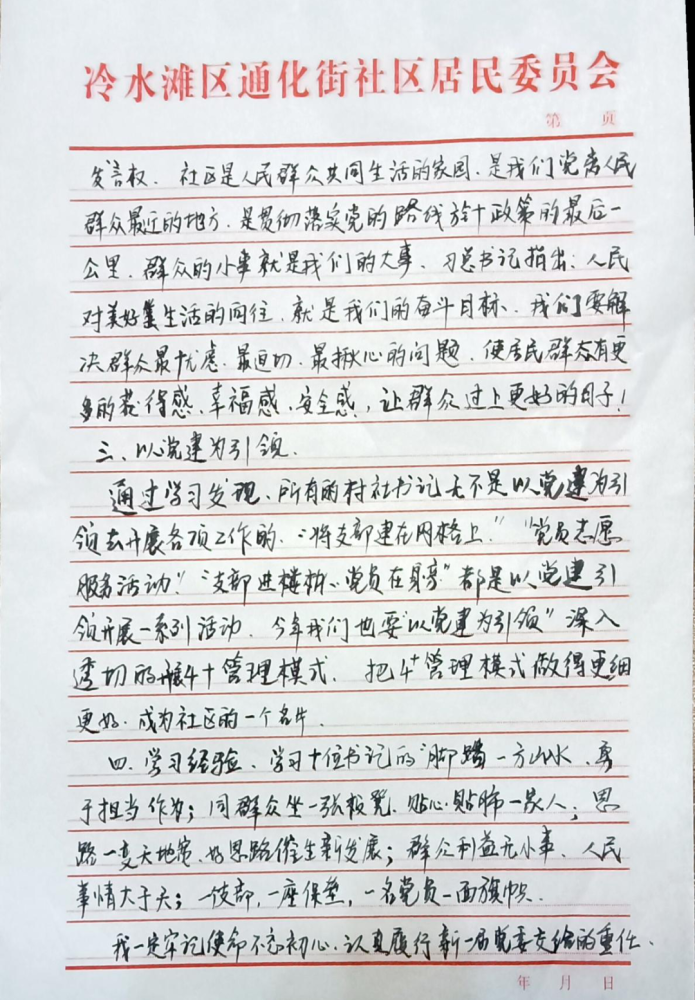 冷水滩区通化街社区居民委员会
第 页
发言权. 社区是人民群众共同生活的家园. 是我们党离人民
群众最近的地方. 是贯彻落实党的路线方针政策的最后一
公里. 群众的小事就是我们的大事. 习总书记指出: 人民
对美好生活的向往. 就是我们的奋斗目标. 我们要解
决群众最忧虑. 最迫切. 最揪心的问题. 使居民群众有更
多的获得感. 幸福感. 安全感, 让群众过上更好的日子!
三. 以党建为引领.
通过学习发现. 所有的村社书记无不是以党建为引
领去开展各项工作的. “将支部建在网格上.” “党员志愿
服务活动” “支部进楼栋、党员在身旁” 都是以党建引
领开展一系列活动. 今年我们也要“以党建为引领” 深入
透切的开展4+管理模式. 把4+管理模式做得更细
更好. 成为社区的一个名片.
四. 学习经验. 学习十位书记的“脚踏一方山水, 勇
于担当作为; 同群众坐一张板凳. 贴心贴肺一家人; 思
路一变天地宽. 好思路催生新发展; 群众利益无小事. 人民
事情大于天; 一支部, 一座堡垒, 一名党员一面旗帜.
我一定牢记使命不忘初心. 认真履行新一届党委交给的重任.
年 月 日